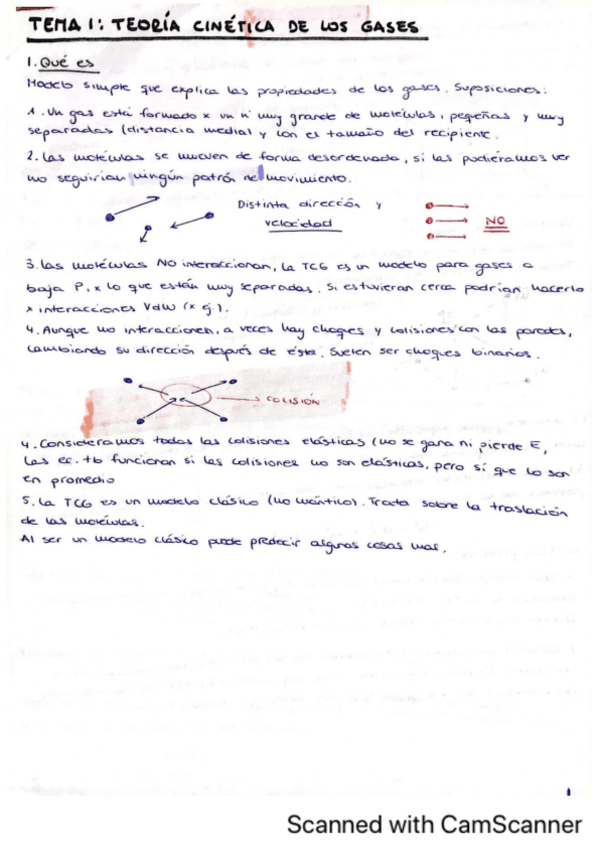 TEMA 1: TEORÍA CINÉTICA DE LOS GASES
1. Qué es
Modelo simple que explica las propiedades de los gases. Suposiciones:
1. Un gas está formado x un nº muy grande de moléculas, pequeñas y muy
separadas (distancia media) y con el tamaño del recipiente.
2. Las moléculas se mueven de forma desordenada, si las pudiéramos ver
no seguirían ningún patrón de movimiento.
Distinta dirección y
velocidad
NO
3. Las moléculas NO interaccionan, la TCG es un modelo para gases a
baja P, x lo que están muy separadas. Si estuvieran cerca podrían hacerlo
x interacciones VdW (x ej).
4. Aunque no interaccionen, a veces hay choques y colisiones con las paredes,
cambiando su dirección después de ésta. Suelen ser choques binarios.
COLISIÓN
4. Consideramos todas las colisiones elásticas (no se gana ni pierde E,
las ec. tb funcionan si las colisiones no son elásticas, pero sí que lo son
en promedio
5. La TCG es un modelo clásico (no cuántico). Trata sobre la traslación
de las moléculas.
Al ser un modelo clásico puede predecir algunas cosas mal.
1
Scanned with CamScanner